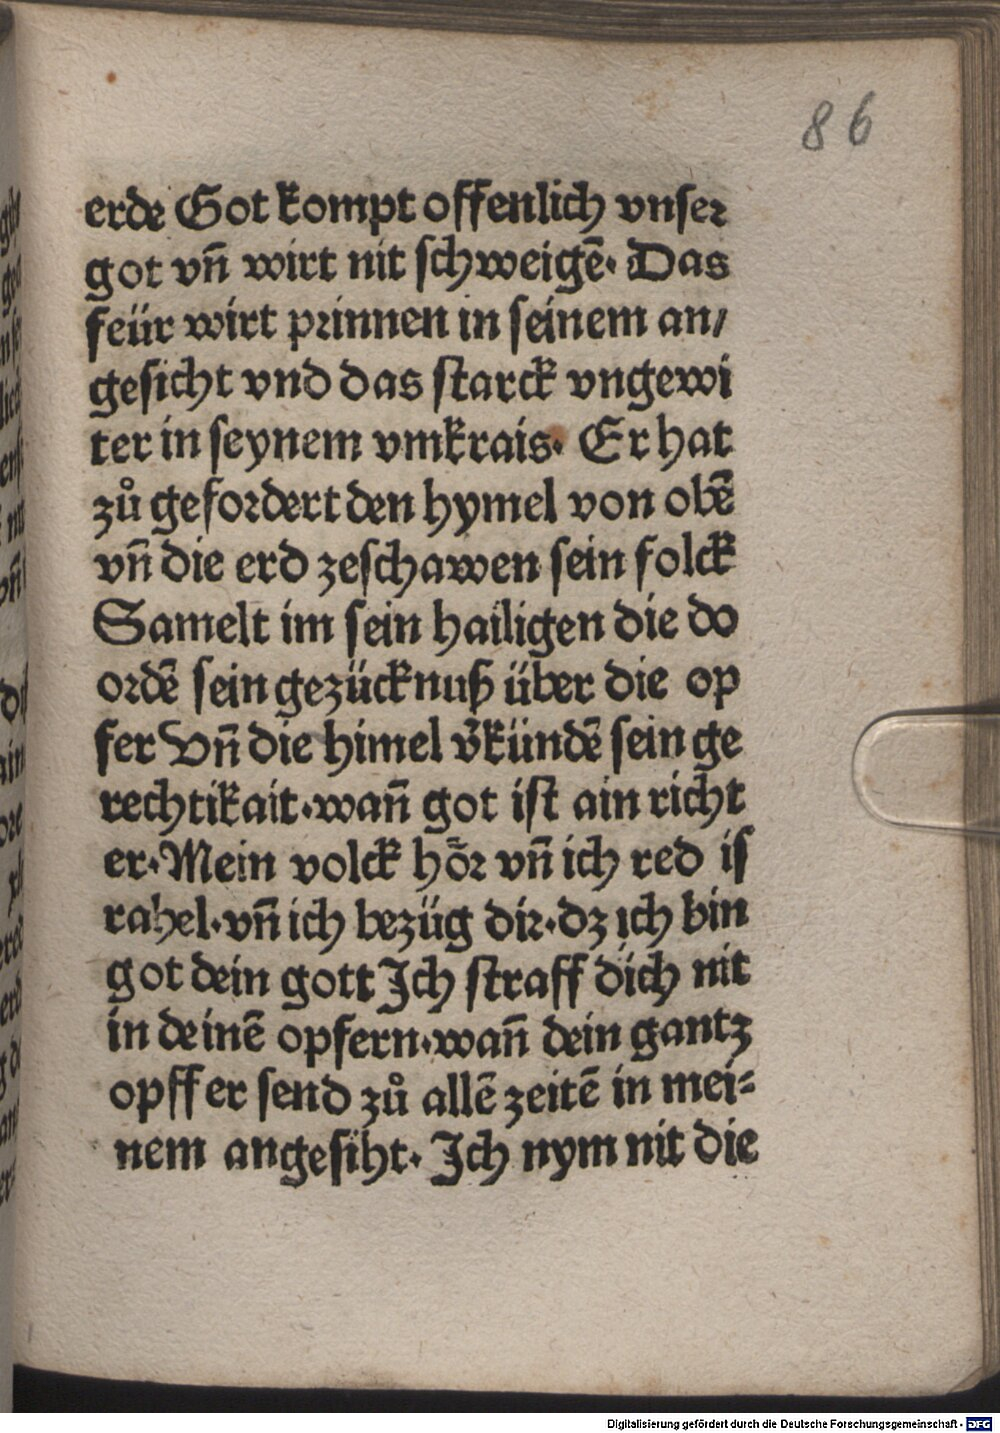 86
erde Got kompt offenlich vnser
got vn̄ wirt nit schweigē. Das
feür wirt prinnen in seinem an/
gesicht vnd das starck vngewi
ter in seynem vmkrais. Er hat
zů gefordert den hymel von obē
vn̄ die erd zeschawen sein folck
Samelt im sein hailigen die do
ordē sein gezücknuß über die op
fer Vn̄ die himel v̄kündē sein ge
rechtikait. wan̄ got ist ain richt
er. Mein volck hör vn̄ ich red is
rahel. vn̄ ich bezüg dir. dz ich bin
got dein gott Ich straff dich nit
in deinē opfern. wan̄ dein gantz
opffer send zů allē zeitē in mei=
nem angesiht. Ich nym nit die
Digitalisierung gefördert durch die Deutsche Forschungsgemeinschaft - DFG